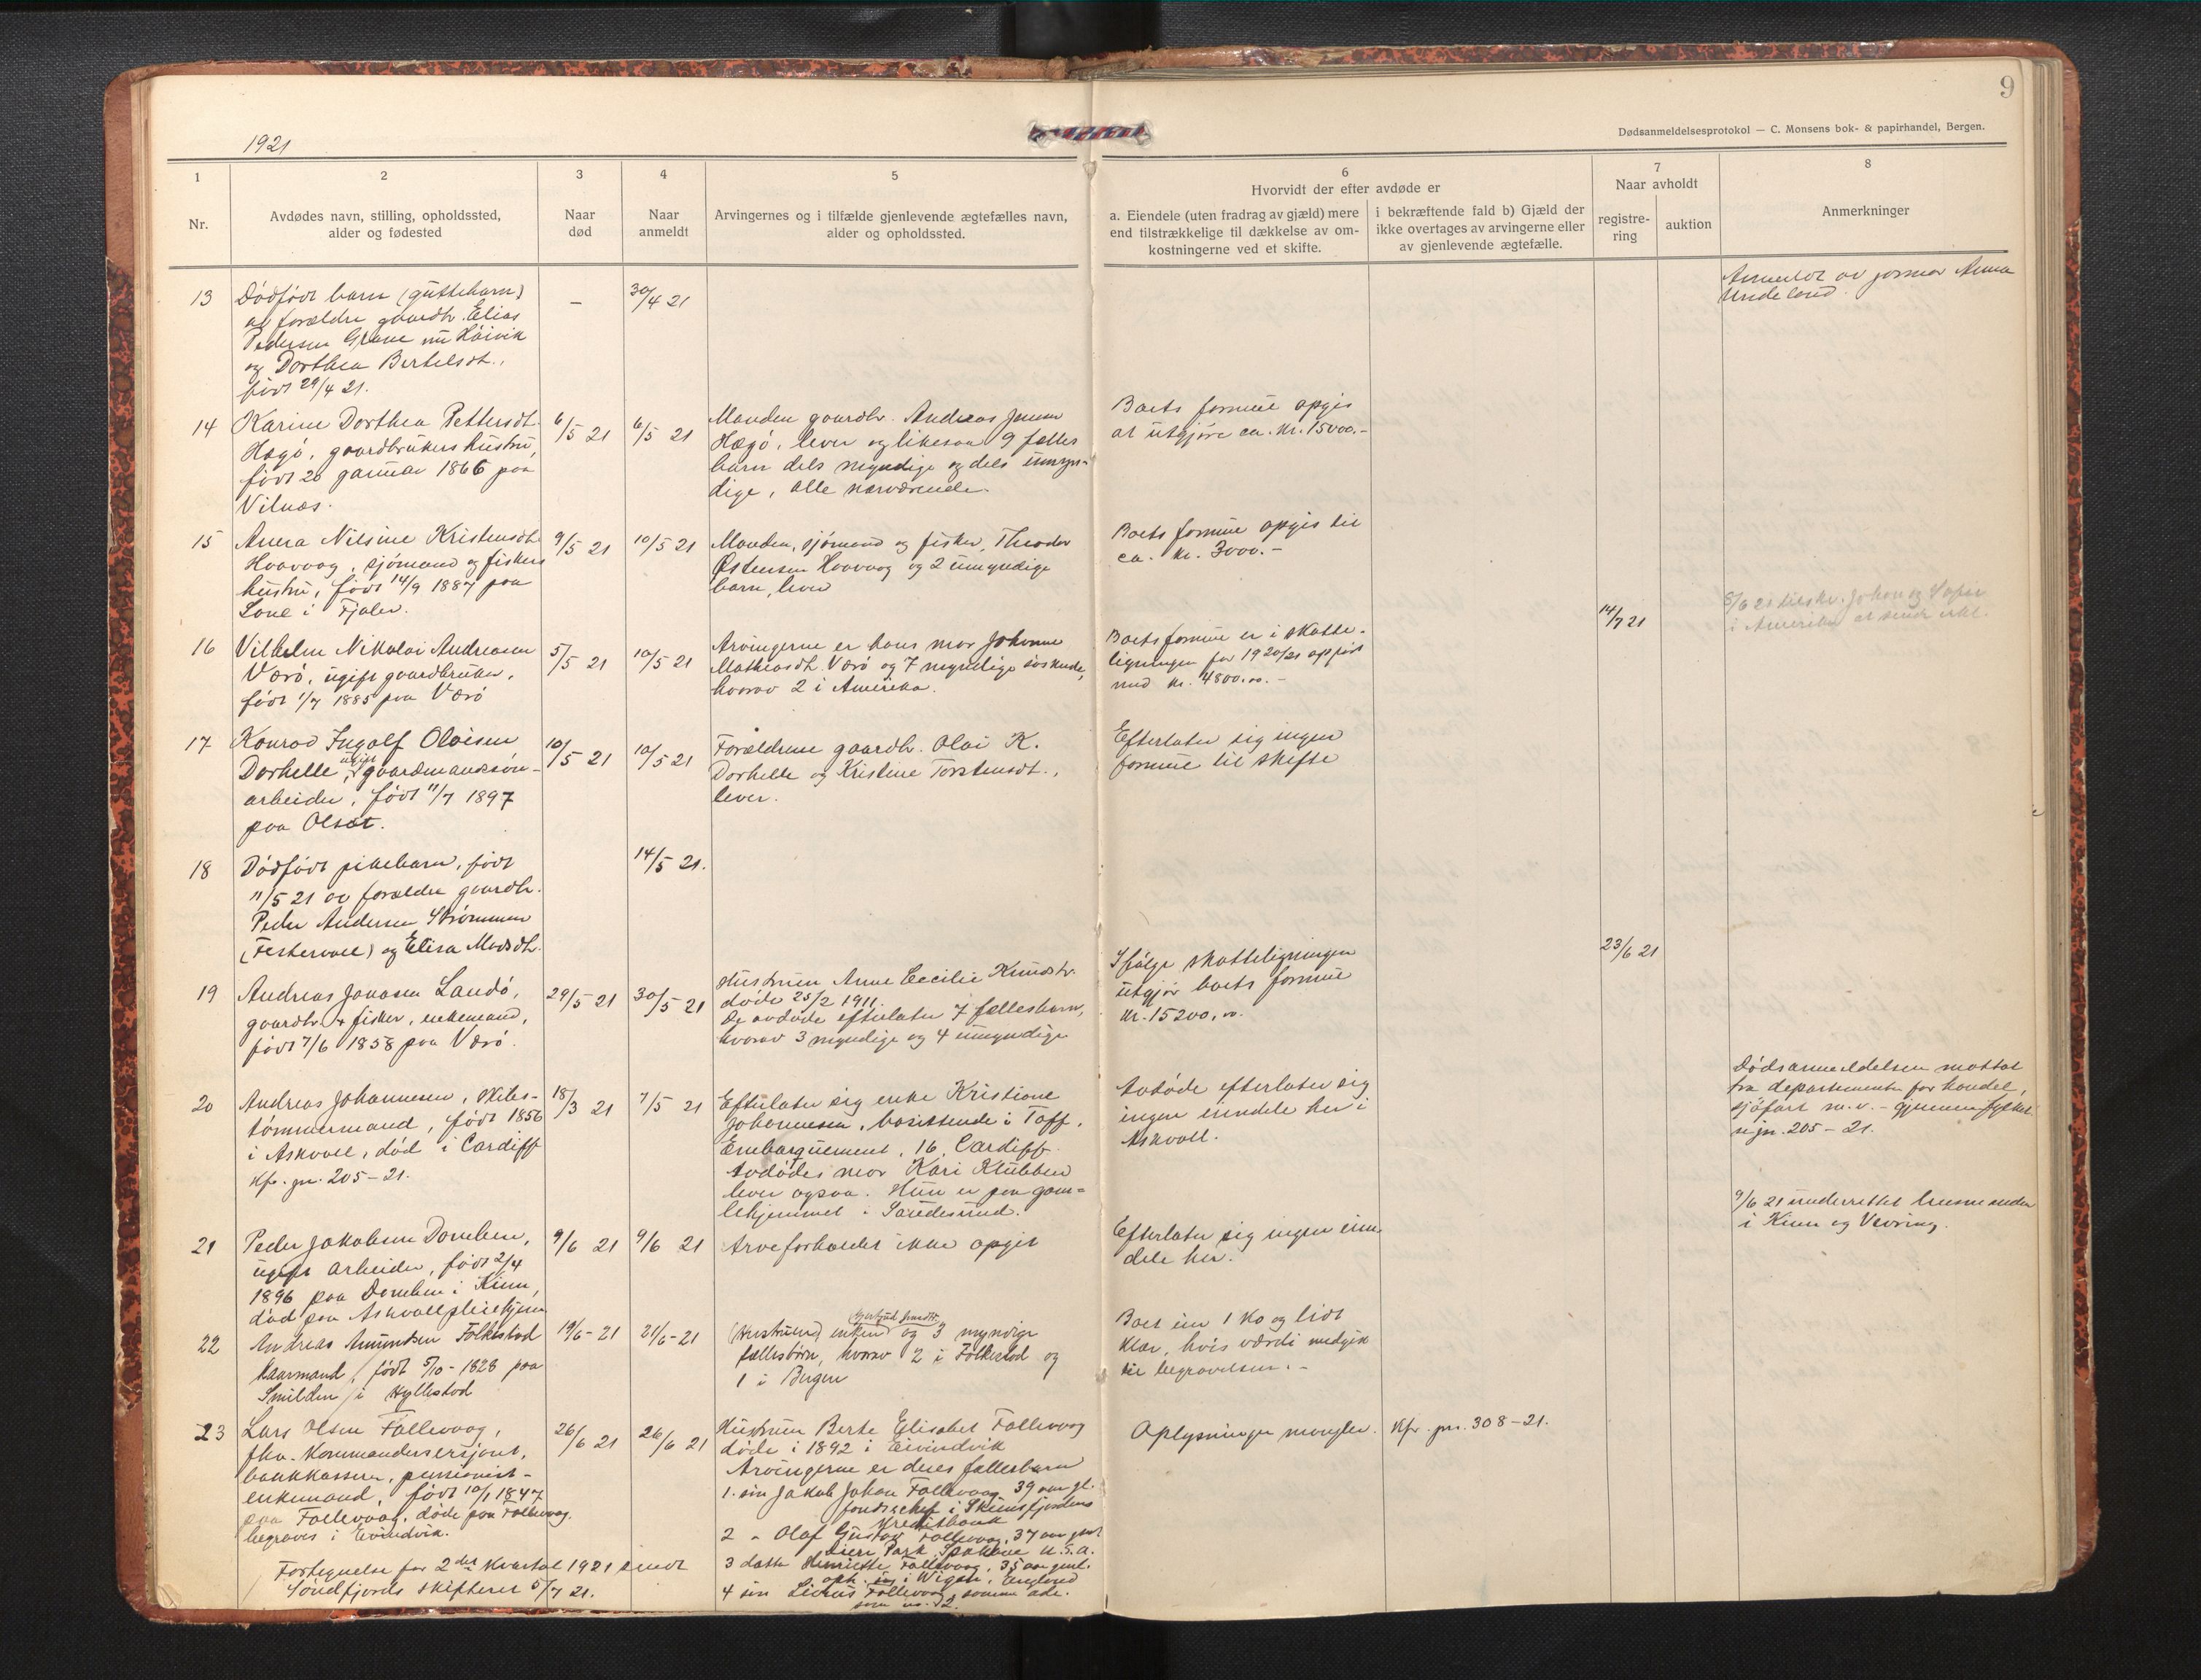 9
Dødsanmeldelsesprotokol — C. Monsens bok- & papirhandel, Bergen.
1921
1
2
3
4
5
6
7
8
Nr.
Avdødes navn, stilling, opholdssted,
alder og fødested
Naar
død
Naar
anmeldt
Arvingernes og i tilfælde gjenlevende ægtefælles navn,
alder og opholdssted.
Hvorvidt der efter avdøde er
a. Eiendele (uten fradrag av gjæld) mere
end tilstrækkelige til dækkelse av om-
kostningerne ved et skifte.
i bekræftende fald b) Gjæld der
ikke overtages av arvingerne eller
av gjenlevende ægtefælle.
Naar avholdt
registre-
ring
auktion
Anmerkninger
13
Dödfödt barn (guttebarn)
av forældre gaardbr. Elias
Pedersen Grane nu Höivik
og Dorthea Bertelsdt.,
födt 29/4 21.
—
30/4 21
Anmeldt av jormor Anna
Undeland.
14
Karine Dorthea Pettersdt.
Hægö, gaardbrukers hustru,
födt 20 januar 1866 paa
Vilnæs.
6/5 21
6/5 21
Manden gaardbr. Andreas Jensen
Hægö, lever og likesaa 9 fælles
barn dels myndige og dels umyn-
dige, alle nærværende.
Boets formue opgis
at utgjöre ca. kr. 15000.-
15
Anna Nilsine Kristensdt.
Haavaag, sjömand og fiskers
hustru, födt 14/9 1887 paa
Lone i Fjaler.
9/5 21
10/5 21
Manden, sjömand og fisker, Theodor
Østensen Haavaag og 2 umyndige
barn, lever
Boets formue opgis til
ca. kr. 3000.-
16
Vilhelm Nikolai Andreasen
Værö, ugift gaardbruker,
födt 1/7 1885 paa Værö
5/5 21
10/5 21
Arvingerne er hans mor Johanne
Mathiasdt. Værö og 7 myndige söskende,
hvorav 2 i Amerika.
Boets formue er i skatte-
ligningen for 1920/21 opfört
med kr. 4800.00.-
14/7 21
8/6 21 tilskr. Johan og
i Amerika at sende erkl.
17
Konrad Ingolf Olaisen
Dorhelle, ugift gaardmandssön-
arbeider, födt 11/7 1897
paa Olset.
10/5 21
10/5 21
Forældrene gaardbr. Olai K.
Dorhelle og Kristine Torstensdt.,
lever.
Efterlater sig ingen
formue til skifte
18
Dödfödt pikebarn, födt
11/5 21 av forældre gaardbr.
Peder Andersen Strömmen
(Festervoll) og Elisa Madsdt.
14/5 21.
19
Andreas Jonasen Landö,
gaardbr. & fisker, enkemand,
födt 7/6 1858 paa Værö.
29/5 21
30/5 21
Hustruen Anne Cecilie Knudsdtr.
döde 25/2 1911.
De avdöde efterlater 7 fællesbarn,
hvorav 3 myndige og 4 umyndige
Ifölge skatteligningen
utgjör boets formue
kr. 15200,00.
23/6 21
20
Andreas Johannesen, skibs-
tömmermand, födt 1856
i Askvoll, död i Cardiff
Kfr. jnr. 205-21.
18/3 21
7/5 21
Efterlater sig enke Kristiane
Johannesen, bosittende i Taff,
Embarquement, 16, Cardiff.
Avdödes mor Kari Klubben
lever ogsaa. Hun er paa gam-
lehjemmet i
Avdöde efterlater sig
ingen eiendele her i
Askvoll.
Dödsanmeldelsen mottat
fra departementet for handel,
sjöfart m.v. - gjennem fylket.
se jnr. 205-21.
21
Peder Jakobsen Domben,
ugift arbeider, födt 2/4
1896 paa Domben i Kinn,
död paa Askvoll pleiehjem
9/6 21
9/6 21
Arveforholdet ikke opgit
Efterlater sig ingen eien-
dele her.
9/6 21 underrettet lensmanden
i Kinn og Vevring.
22
Andreas Amundsen Folkestad
kaarmand, födt 5/10-1828 paa
Smilden i Hyllestad
19/6-21
21/6-21
(Hustruen) enken og 3 myndige
fællesbörn, hvorav 2 i Folkestad og
1 i Bergen
Boet eier 1 ko og lidt
klær, hvis værdi medgik
til begravelsen.-
23
Lars Olsen Fallevaag,
fhv. kommandersersjant,
bankkasserer, pensionist-
enkemand, födt 10/1 1847
paa Fallevaag, döde paa Fallevaag.
begraves i Eivindvik.
26/6 21
26/6 21
Hustruen Berte Elisabet Fallevaag
döde i 1892 i Eivindvik
Arvingerne er deres fællesbarn
1. sön Jakob Johan Fallevaag 39 aar gl.
fondschef i Skiensfjordens
Kreditbank
2 - Olaf Gustav Fallevaag, 37 aar gml
Deer Park Spokane U.S.A.
3 datter Henriette Fallevaag, 35 aar gml.
oph. sig i Wigan, England
4 sön Fallevaag, samme adr.
som nr. 2.
Oplysninger mangler.
Kfr. jnr. 308-21.
Fortegnelse for 2det kvartal 1921 sendt
Söndfjords skifteret 5/7 21.